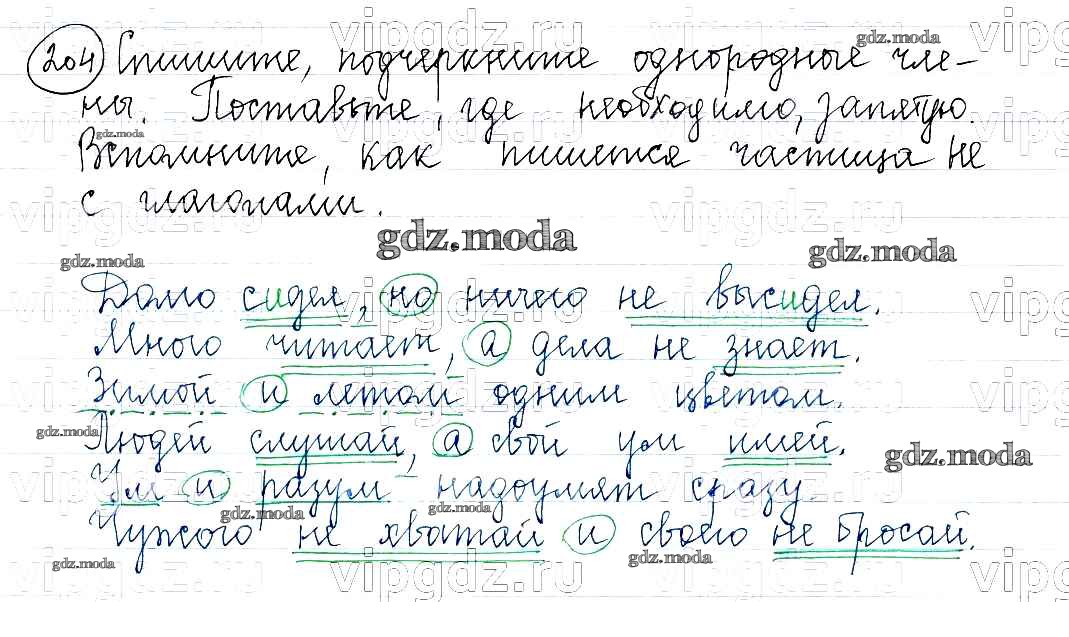 204 Спишите, подчеркните однородные чле-
ны. Поставьте, где необходимо, запятую.
Вспомните, как пишется частица не
с глаголами.
Долго сидел, но ничего не высидел.
Много читает, а дела не знает.
Зимой и летом одним цветом.
Людей слушай, а свой ум имей.
Ум и разум надоумят сразу.
Чужого не хватай и своего не бросай.